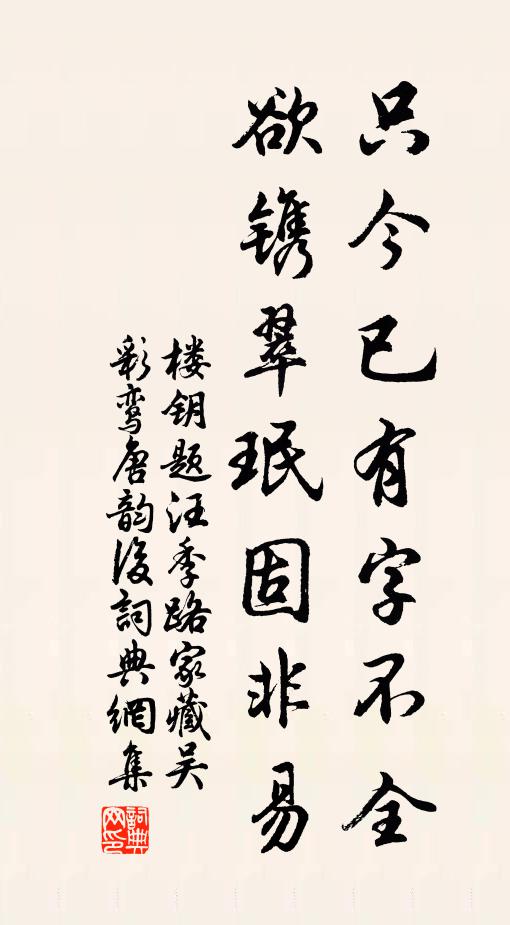 只今已有字不全
欲镌翠珉固非易
楼钥题汪季路家藏吴
彩鸾唐韵后詞典網集
詞典網印